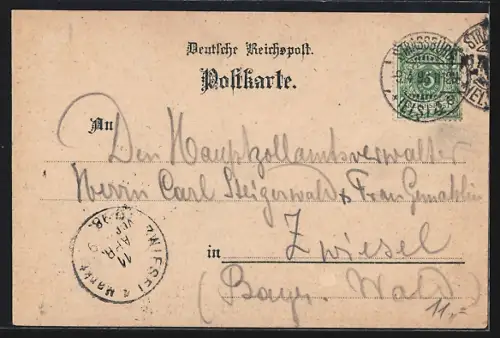 Deutsche Reichspost.
Postkarte.
STRASSBURG
5
(ELS)
An
Den Hauptzollamtsverwalter
Herrn Carl Steigerwald & Frau Gemahlin
in Zwiesel
(Bayr. Wald)
ZWIESEL
11
APR
98
Markt
11.=